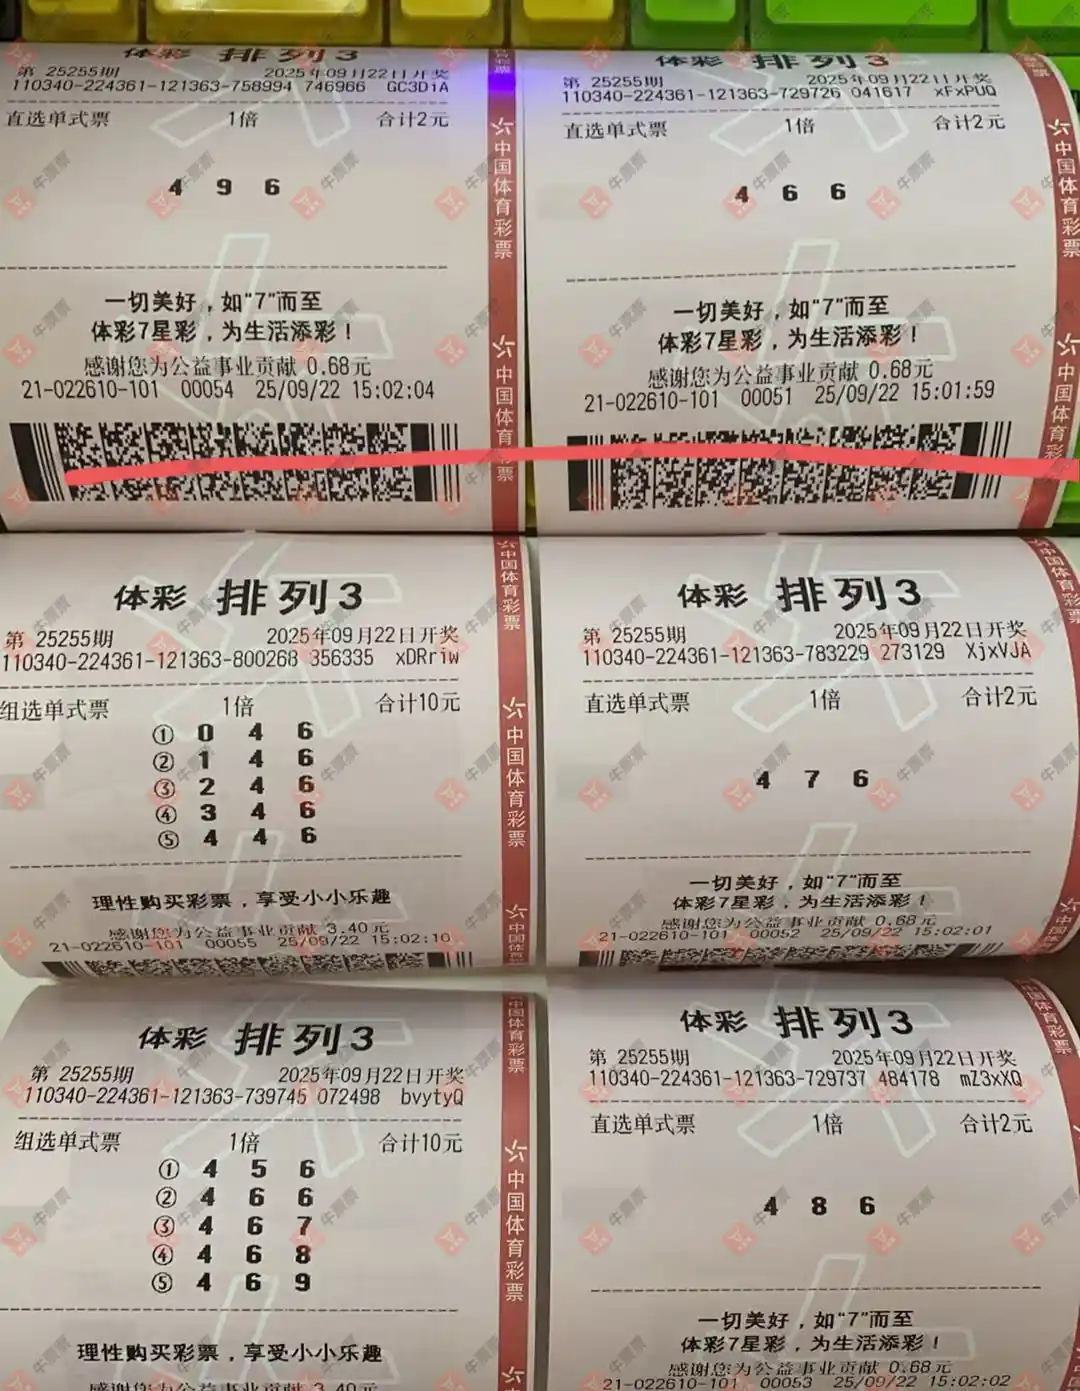 体彩 排列3
第 25255期 2025年09月22日开奖
110340-224361-121363-758994 746966 GC3DiA
直选单式票 1倍 合计2元
4 9 6
一切美好，如“7”而至
体彩7星彩，为生活添彩！
感谢您为公益事业贡献 0.68元
21-022610-101 00054 25/09/22 15:02:04
中国体育彩票
中国体育彩票
体彩 排列3
第 25255期 2025年09月22日开奖
110340-224361-121363-729726 041617 xFxPUQ
直选单式票 1倍 合计2元
4 6 6
一切美好，如“7”而至
体彩7星彩，为生活添彩！
感谢您为公益事业贡献 0.68元
21-022610-101 00051 25/09/22 15:01:59
中国体育彩票
中国体育彩
体彩 排列3
第 25255期 2025年09月22日开奖
110340-224361-121363-800268 356335 xDRriw
组选单式票 1倍 合计10元
① 0 4 6
② 1 4 6
③ 2 4 6
④ 3 4 6
⑤ 4 4 6
理性购买彩票，享受小小乐趣
感谢您为公益事业贡献 3.40元
21-022610-101 00055 25/09/22 15:02:10
中国体育彩票
中国体育彩票
体彩 排列3
第 25255期 2025年09月22日开奖
110340-224361-121363-783229 273129 XjxVJA
直选单式票 1倍 合计2元
4 7 6
一切美好，如“7”而至
体彩7星彩，为生活添彩！
感谢您为公益事业贡献 0.68元
21-022610-101 00052 25/09/22 15:02:01
中国体育彩票
中国体育彩票
体彩 排列3
第 25255期 2025年09月22日开奖
110340-224361-121363-739745 072498 bvytyQ
组选单式票 1倍 合计10元
① 4 5 6
② 4 6 6
③ 4 6 7
④ 4 6 8
⑤ 4 6 9
理性购买彩票，享受小小乐趣
感谢您为公益事业贡献 3.40元
中国体育彩票
中国体育彩票
体彩 排列3
第 25255期 2025年09月22日开奖
110340-224361-121363-729737 484178 mZ3xXQ
直选单式票 1倍 合计2元
4 8 6
一切美好，如“7”而至
体彩7星彩，为生活添彩！
感谢您为公益事业贡献 0.68元
21-022610-101 00053 25/09/22 15:02:02
牛票票